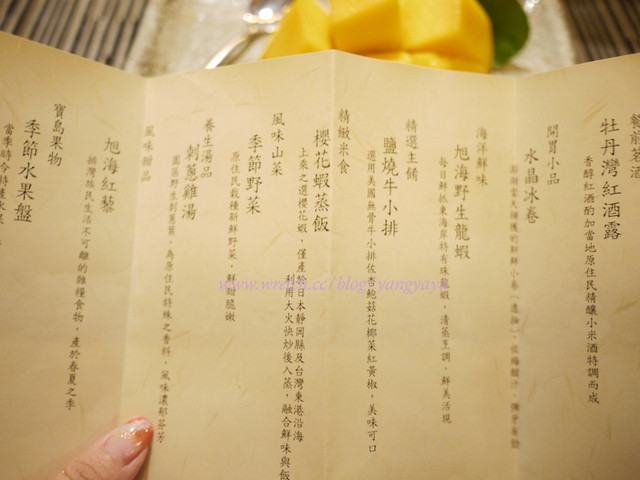 餐前茗酒
牡丹灣紅酒露
香醇紅酒酌加當地原住民精釀小米酒特調而成
開胃小品
水晶冰卷
海洋鮮味
旭海野生龍蝦
每日鮮抓東海岸特有珠 龍蝦，清蒸烹調，鮮美活現
精選主餚
鹽燒牛小排
選用美國無骨牛小排佐杏鮑菇花椰菜紅黃椒，美味可口
精緻米食
櫻花蝦蒸飯
上乘之選櫻花蝦，僅產於日本靜岡縣及台灣東港沿海
利用大火快炒後入蒸，融合鮮味與飯
風味山菜
季節野菜
原住民栽種新鮮野菜，鮮甜脆嫩
養生湯品
刺蔥雞湯
園區野生刺蔥葉，為原住民特殊之香料，風味濃郁芬芳
風味甜品
旭海紅藜
排灣族民生活不可離的雜糧食物，產於春夏之季
寶島果物
季節水果盤
當季時令特選水果
www.wretch.cc/blog/yangyaya